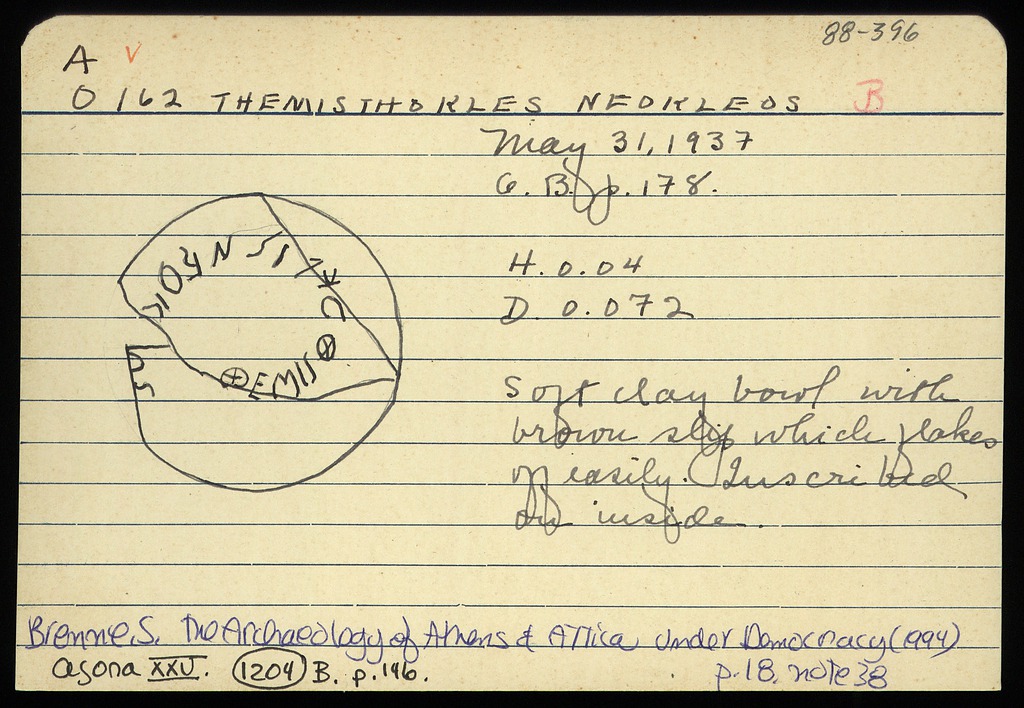 88-396
A V
O 162 THEMISTHOKLES NEOKLEOS B
May 31, 1937
G. B. p. 178.
H. 0.04
D. 0.072
Soft clay bowl with
brown slip which flakes
off easily. Inscribed
on inside.
Brenne, S. The Archaeology of Athens & Attica under Democracy (1994)
p. 18. note 38
agora XXV. 1204 B. p. 146.